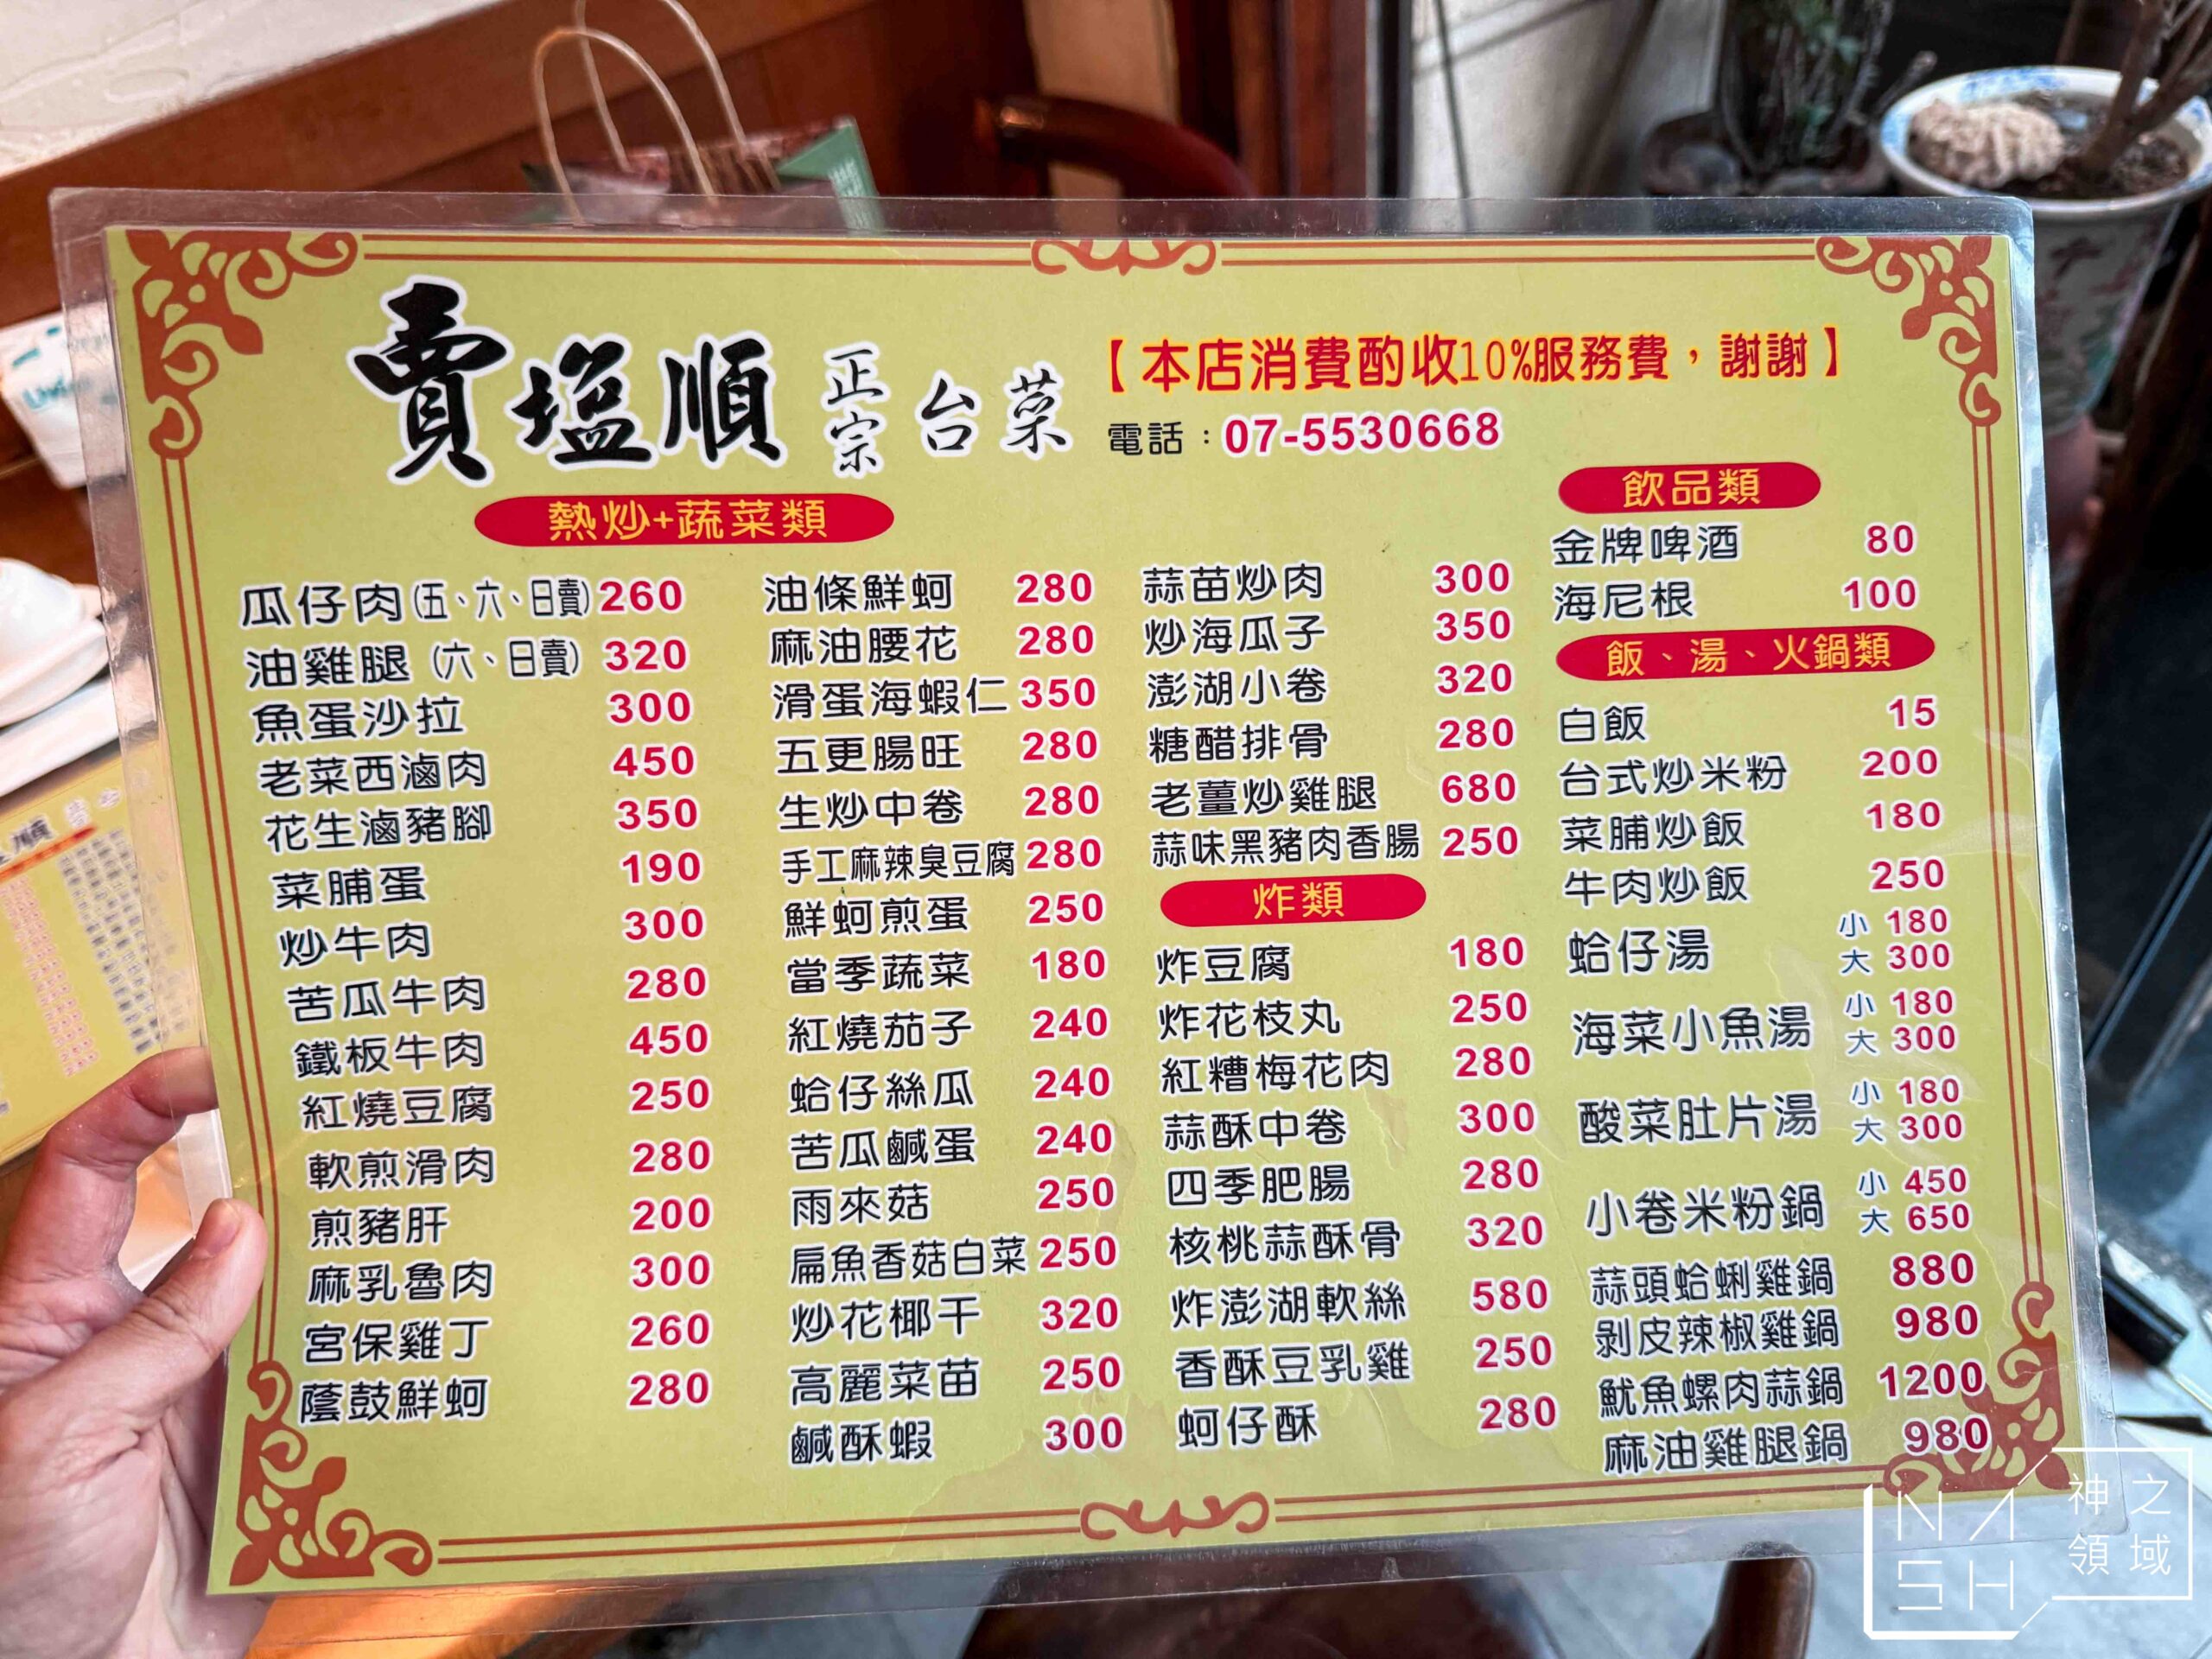 賣塩順 正宗 台菜
【本店消費酌收10%服務費,謝謝】
電話:07-5530668
熱炒+蔬菜類
瓜仔肉(五、六、日賣) 260
油雞腿(六、日賣) 320
魚蛋沙拉 300
老菜西滷肉 450
花生滷豬腳 350
菜脯蛋 190
炒牛肉 300
苦瓜牛肉 280
鐵板牛肉 450
紅燒豆腐 250
軟煎滑肉 280
煎豬肝 200
麻乳魯肉 300
宮保雞丁 260
蔭鼓鮮蚵 280
油條鮮蚵 280
麻油腰花 280
滑蛋海蝦仁 350
五更腸旺 280
生炒中卷 280
手工麻辣臭豆腐 280
鮮蚵煎蛋 250
當季蔬菜 180
紅燒茄子 240
蛤仔絲瓜 240
苦瓜鹹蛋 240
雨來菇 250
扁魚香菇白菜 250
炒花椰干 320
高麗菜苗 250
鹹酥蝦 300
蒜苗炒肉 300
炒海瓜子 350
澎湖小卷 320
糖醋排骨 280
老薑炒雞腿 680
蒜味黑豬肉香腸 250
炸類
炸豆腐 180
炸花枝丸 250
紅糟梅花肉 280
蒜酥中卷 300
四季肥腸 280
核桃蒜酥骨 320
炸澎湖軟絲 580
香酥豆乳雞 250
蚵仔酥 280
飲品類
金牌啤酒 80
海尼根 100
飯、湯、火鍋類
白飯 15
台式炒米粉 200
菜脯炒飯 180
牛肉炒飯 250
蛤仔湯 小 180
大 300
海菜小魚湯 小 180
大 300
酸菜肚片湯 小 180
大 300
小卷米粉鍋 小 450
大 650
蒜頭蛤蜊雞鍋 880
剝皮辣椒雞鍋 980
魷魚螺肉蒜鍋 1200
麻油雞腿鍋 980
NASH
神之領域